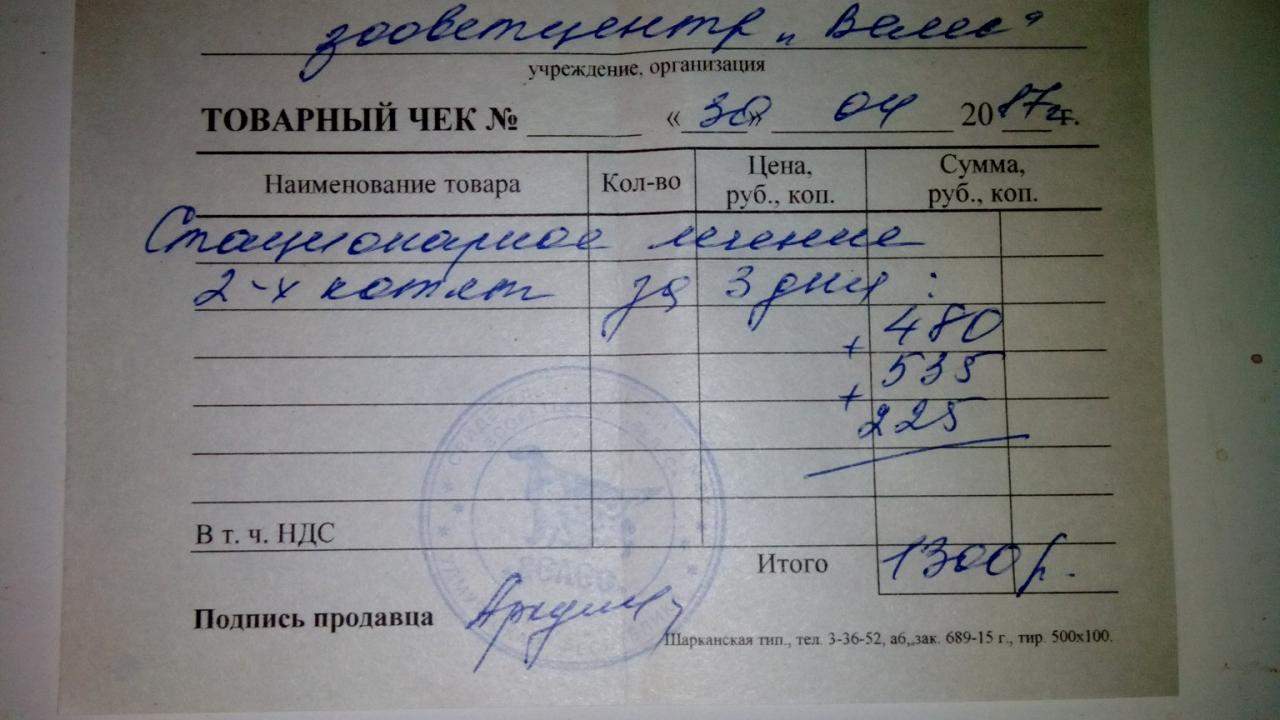 зооветцентр „Велес"
учреждение, организация
ТОВАРНЫЙ ЧЕК № ______ «30» 04 2017г. г.
Наименование товара Кол-во Цена, руб., коп. Сумма, руб., коп.
Стационарное лечение
2-х котят за 3 дня :
480
+ 535
+ 225
В т. ч. НДС
Итого 1300 р.
Подпись продавца
Шарканская тип., тел. 3-36-52, аб,,зак. 689-15 г., тир. 500х100.
ВЕЛЕС